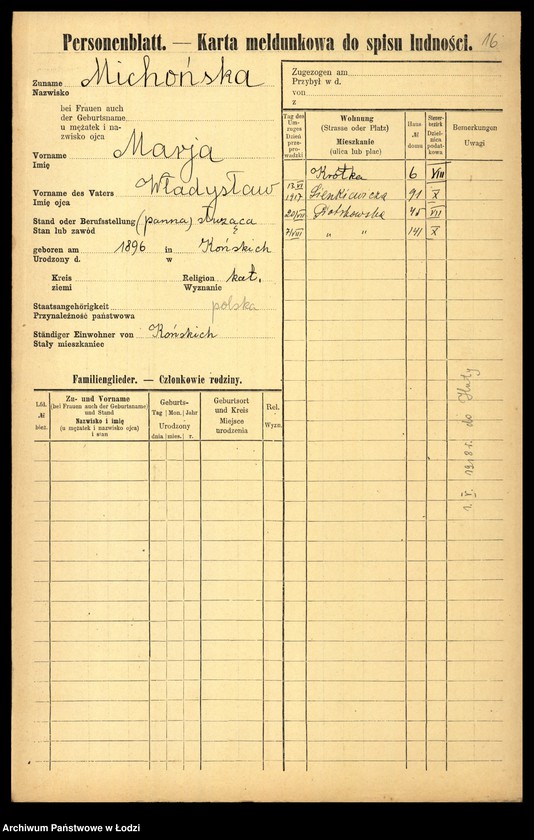 Personenblatt. — Karta meldunkowa do spisu ludności. 16
Zuname
Nazwisko
Michońska
bei Frauen auch
der Geburtsname
u mężatek i na-
zwisko ojca
Vorname
Imię
Marja
Vorname des Vaters
Imię ojca
Władysław
Stand oder Berufsstellung (panna) służąca
Stan lub zawód
geboren am 1896 in Końskich
Urodzony d. w
Kreis
ziemi
Religion kat.
Wyznanie
Staatsangehörigkeit
Przynależność państwowa
polska
Ständiger Einwohner von Końskich
Stały mieszkaniec
Familienglieder. — Członkowie rodziny.
Lfd.
№
bież.
Zu- und Vorname
(bei Frauen auch der Geburtsname)
und Stand
Nazwisko i imię
(u mężatek i nazwisko ojca)
i stan
Geburts-
Tag Mon. Jahr
Urodzony
dnia mies. r.
Geburtsort
und Kreis
Miejsce
urodzenia
Rel.
Wyzn.
Zugezogen am
Przybył w d.
von
z
Tag des
Um-
zuges
Dzień
prze-
prowadzki
Wohnung
(Strasse oder Platz)
Mieszkanie
(ulica lub plac)
Haus
№
domu
Steuer-
bezirk
Dziel-
nica
podat-
kowa
Bemerkungen
Uwagi
Krótka 6 VIII
13.XI
1917 Sienkiewicza 91 X
20/VII Piotrkowska 45 VII
7/VIII " " 141 X
1. V. 1918 r. do Huty
Archiwum Państwowe w Łodzi